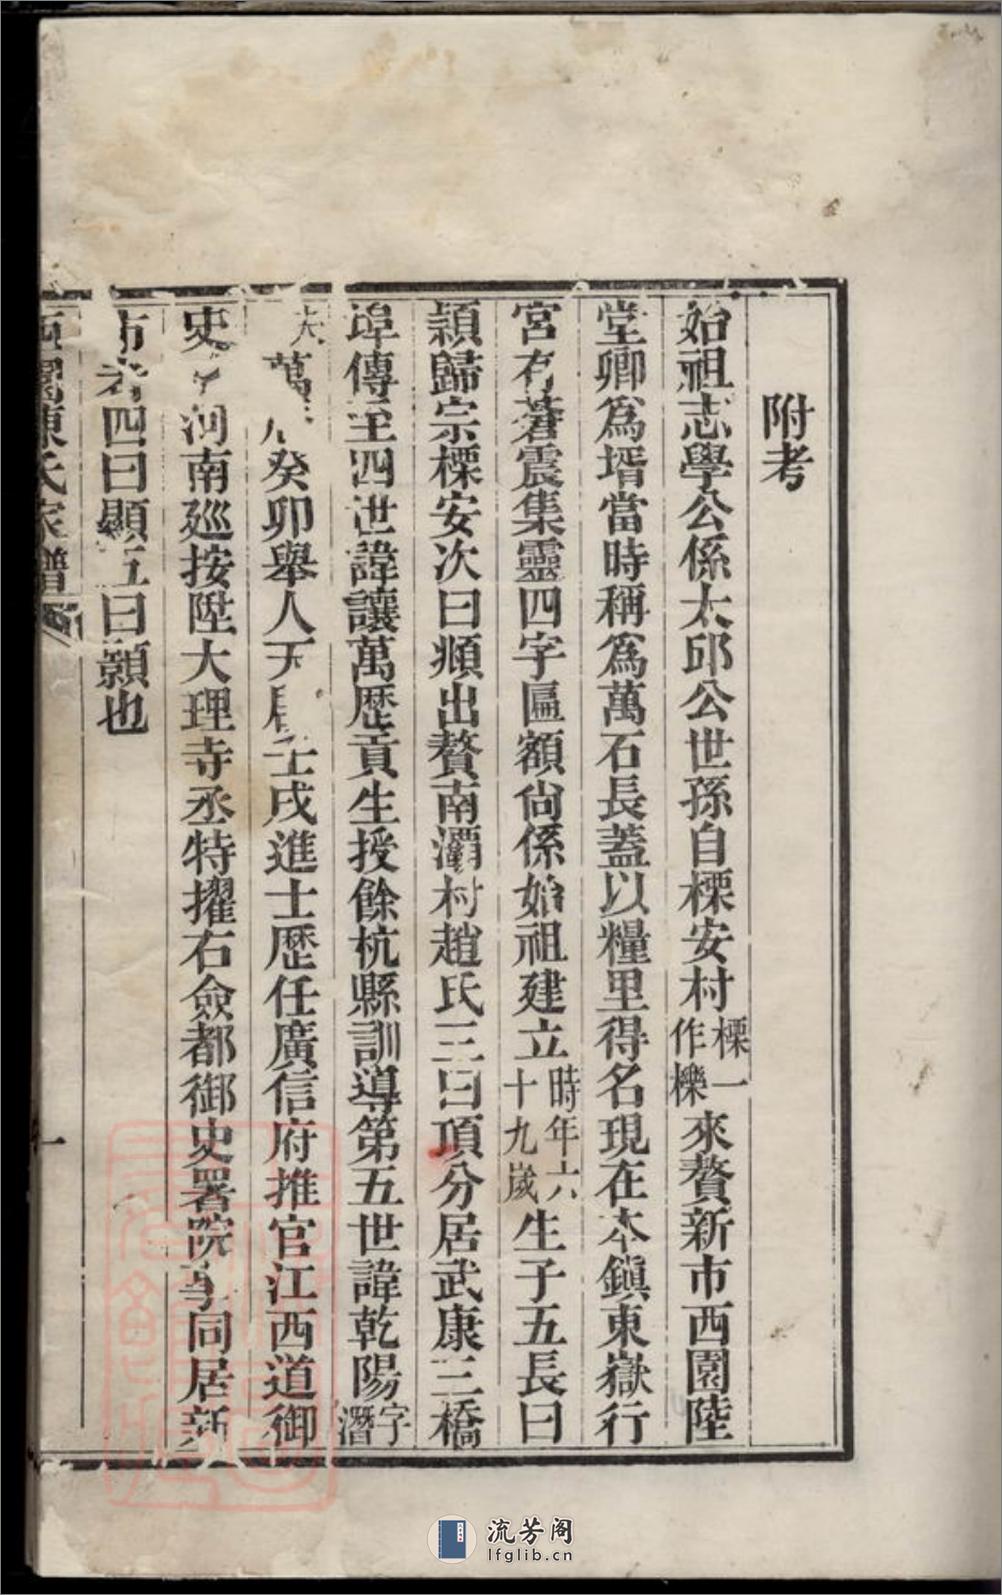 附考
始祖志學公係太邱公世孫自樸安村樸一作櫟來贅新市西園陸
堂卿爲壻當時稱爲萬石長蓋以糧里得名現在本鎮東嶽行
宮有蒼震集靈四字匾額尚係始祖建立時年六十九歲生子五長曰
頴歸宗樸安次曰頫出贅南灞村趙氏三曰頊分居武康三橋
埠傳至四世諱讓萬歷貢生授餘杭縣訓導第五世諱乾陽字潛
夫萬癸卯舉人天壬戌進士歷任廣信府推官江西道御
史河南廵按陞大理寺丞特擢右僉都御史署院事同居新
市者四曰顯五曰顥也
西園陳氏家譜
一
流芳阁
lfglib.cn